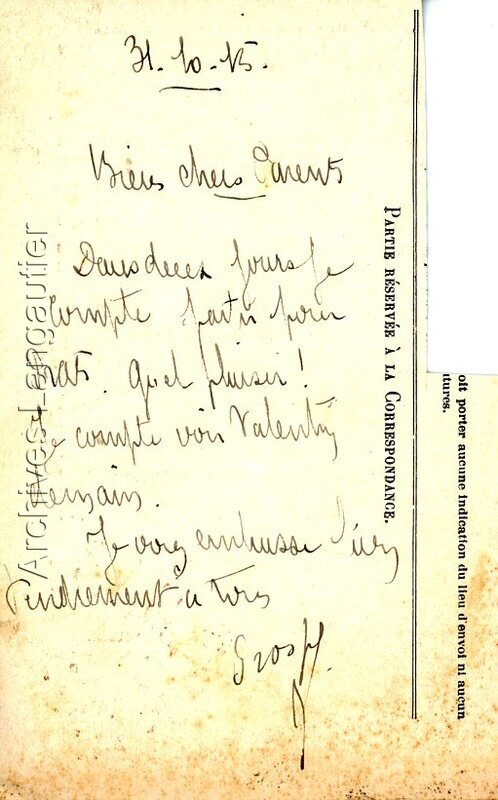 31.10.15.
Biens chers Parents
Dans deux jours je
compte partir pour
Quel plaisir !
Je compte voir Valentin
demain.
Je vous embrasse bien
tendrement à tous
PARTIE RÉSERVÉE À LA CORRESPONDANCE.
oit porter aucune indication du lieu d'envoi ni aucun
tures.